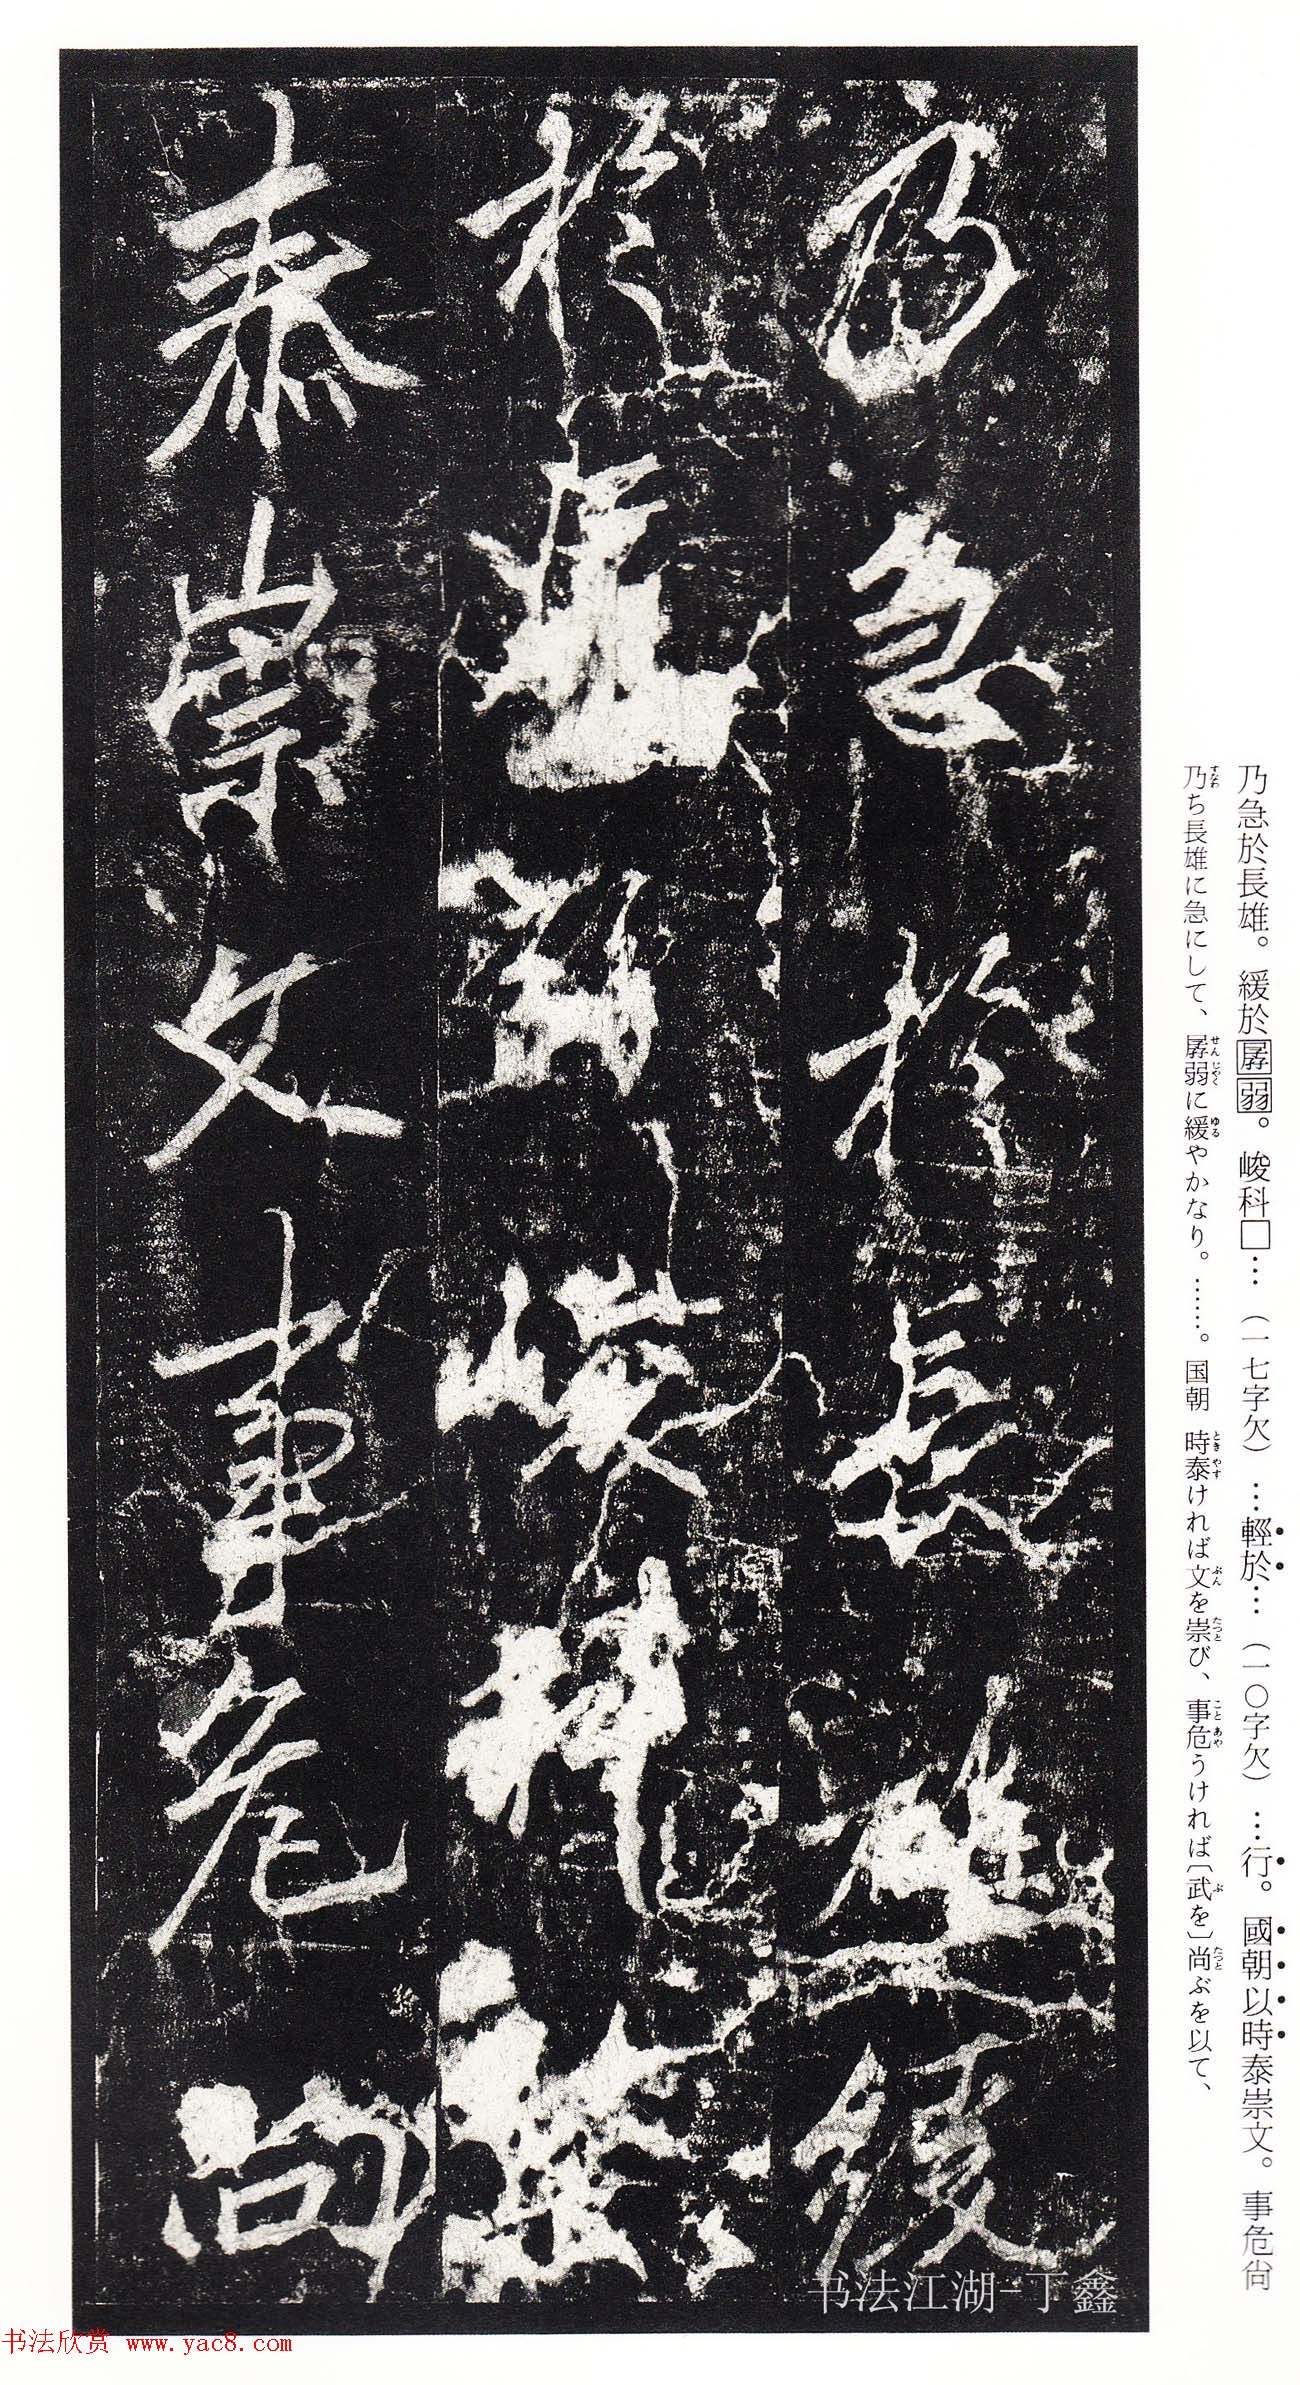 乃急於長雄緩
於孱弱峻科
泰崇文事危尚
乃急於長雄。緩於孱弱。峻科□…（一七字欠）…輕於…（一〇字欠）…行。國朝以時泰崇文。事危尙
乃ち長雄に急にして、孱弱に緩やかなり。……。国朝 時泰ければ文を崇び、事危うければ〔武を〕尚ぶを以て、
书法江湖-丁鑫
书法欣赏 www.yac8.com